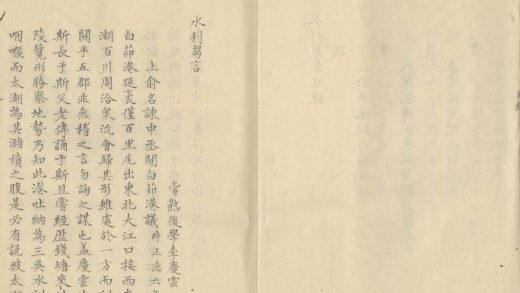 水利芻言
常熟後學李慶雲
上俞名諫中丞開白茆港議時正德六
白茆港延袤僅百里尾出東北大江口接西
湖百川周洽眾流會歸其形雖處於一方而利
關乎五郡非無稽之言勿詢之謀也蓋慶雲
斯長于斯父老傳誦于斯且嘗經歷錢塘來
陵覽形勝察地勢乃知此港吐納為三吳水利
咽喉而太湖為其瀦積之腹是必有説彼太